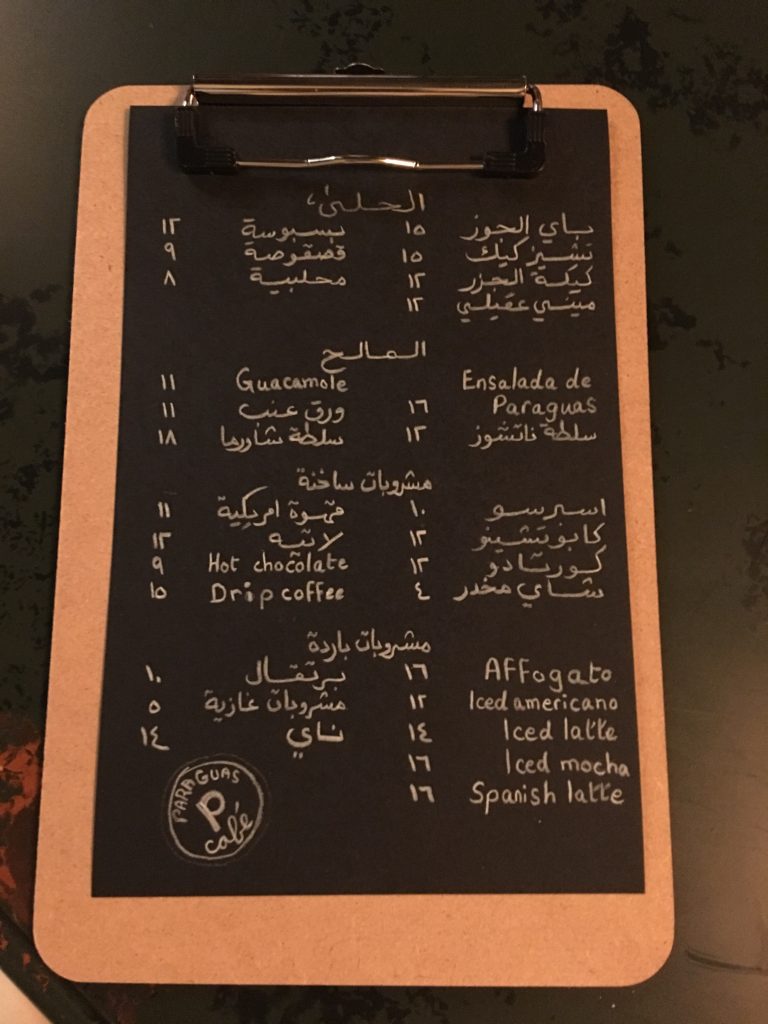 الحلى
باي الجوز ١٥ بسبوسة ١٢
تشيز كيك ١٥ قصقوصة ٩
كيكة الجزر ١٢ محلبية ٨
ميني عقيلي ١٢
المالح
Ensalada de Guacamole ١١
Paraguas ١٦ ورق عنب ١١
سلطة ناتشوز ١٢ سلطة شاورما ١٨
مشروبات ساخنة
اسبرسو ١٠ قهوة امريكية ١١
كابوتشينو ١٢ لاتيه ١٢
كورتادو ١٢ Hot chocolate ٩
شاي مخدر ٤ Drip coffee ١٥
مشروبات باردة
Affogato ١٦ برتقال ١٠
Iced americano ١٢ مشروبات غازية ٥
Iced latte ١٤ ناي ١٤
Iced mocha ١٦
Spanish latte ١٦
PARAGUAS
P
café